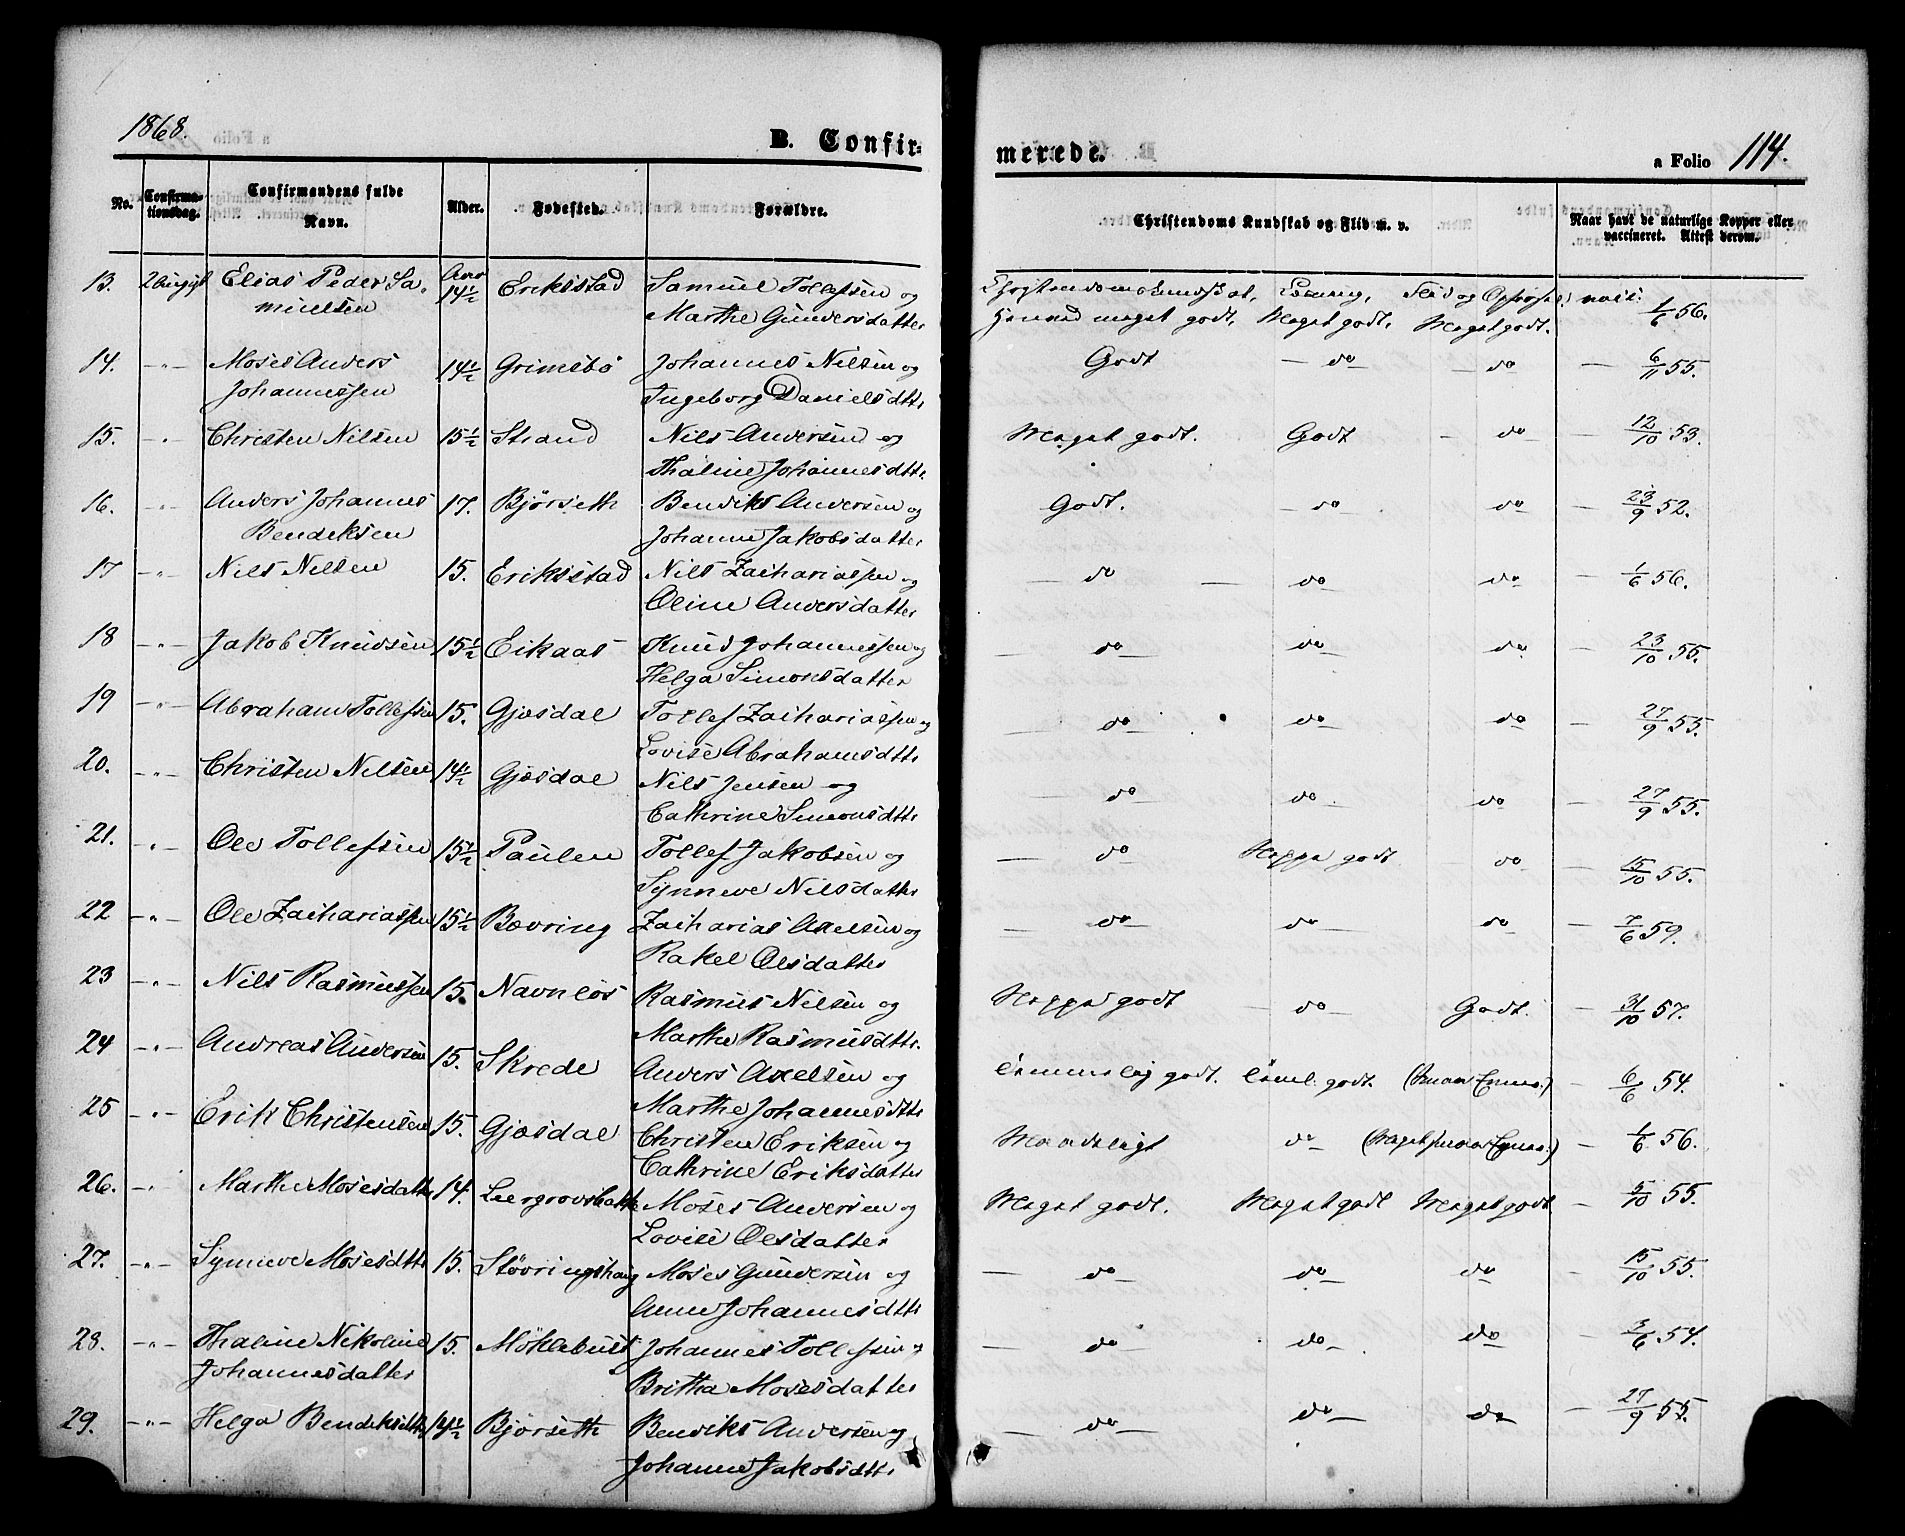 1868.
B. Confir-
No.
Confirma-
tionsdag.
Confirmandens fulde
Navn.
Alder.
Fødested.
Forældre.
13. Elias Peder Sa- Aar 14½ Erikstad Samuel Tollefsen og
muelsen Marthe Gundersdatter
14. -"- Moses Anders 14½ Grimsbö Johannes Nilsen og
Johannessen Ingeborg Danielsdttr
15. -"- Christen Nilsen 15½ Strand Nils Andersen og
Thaline Johannesdttr
16. -"- Anders Johannes 17. Bjørseth Bendiks Andersen og
Bendiksen Johanne Jakobsdatter
17 -"- Nils Nilsen 15. Erikstad Nils Zachariassen og
Oline Andersdatter
18 -"- Jakob Knudsen 15½ Eikaas Knud Johannessen og
Helga Simonsdatter
19 -"- Abraham Tollefsen 15. Gjæsdal Tollef Zachariassen og
Lovise Abrahamsdttr
20. -"- Christen Nilsen 14½ Gjæsdal Nils Jensen og
Cathrine Simonsdttr
21. -"- Ole Tollefsen 15½ Paulen Tollef Jakobsen og
Synneve Nilsdatter
22 -"- Ole Zachariassen 15½ Bævring Zacharias Axelsen og
Rakel Olsdatter
23 -"- Nils Rasmussen 15. Navnløs Rasmus Nilsen og
Marthe Rasmusdttr
24 -"- Andreas Andersen 15. Skrede Anders Axelsen og
Marthe Johannesdttr
25 -"- Erik Christensen 15. Gjæsdal Christen Eriksen og
Cathrine Eriksdatter
26. -"- Marthe Mosesdatter 14. Leergrovsbakke Moses Andersen og
Lovise Olsdatter
27. -"- Synneve Mosesdttr 15. Støvringshaug Moses Gundersen og
Anne Johannesdttr
28. -"- Thaline Nikoline 15. Möklebust Johannes Tollefsen og
Johannesdatter Britha Mosesdatter
29. -"- Helga Bendiksdttr 14½ Bjørseth Bendiks Andersen og
Johanne Jakobsdttr
merede.
a Folio 114.
Christendoms Kundskab og Flid m. v.
Naar havt de naturlige Kopper eller
vaccineret. Attest derom.
Christendomskundskab, Læsning, Flid og Opførsel
meget godt, Meget godt. Meget godt. 1/6 56.
Godt - do - do - 6/11 55.
Meget godt. Godt - do - 12/10 53.
Godt. - do - do - 23/9 52.
- do - do do - 1/6 56.
- do - do do - 23/10 55.
- do - do do - 27/9 53.
- do - do do - 27/9 55.
- do - Nogga godt - do - 15/10 55.
- do - do - do - 7/6 59.
godt - do - Godt. - 31/10 57.
Temmelig godt. Teml. godt. - 6/6 54.
Maadeligt do - 1/6 56.
Meget godt. Meget godt Meget godt - 5/10 55.
- do - do do - 15/10 55.
- do - do - do - 3/6 54.
- do - do - do - 27/9 53.